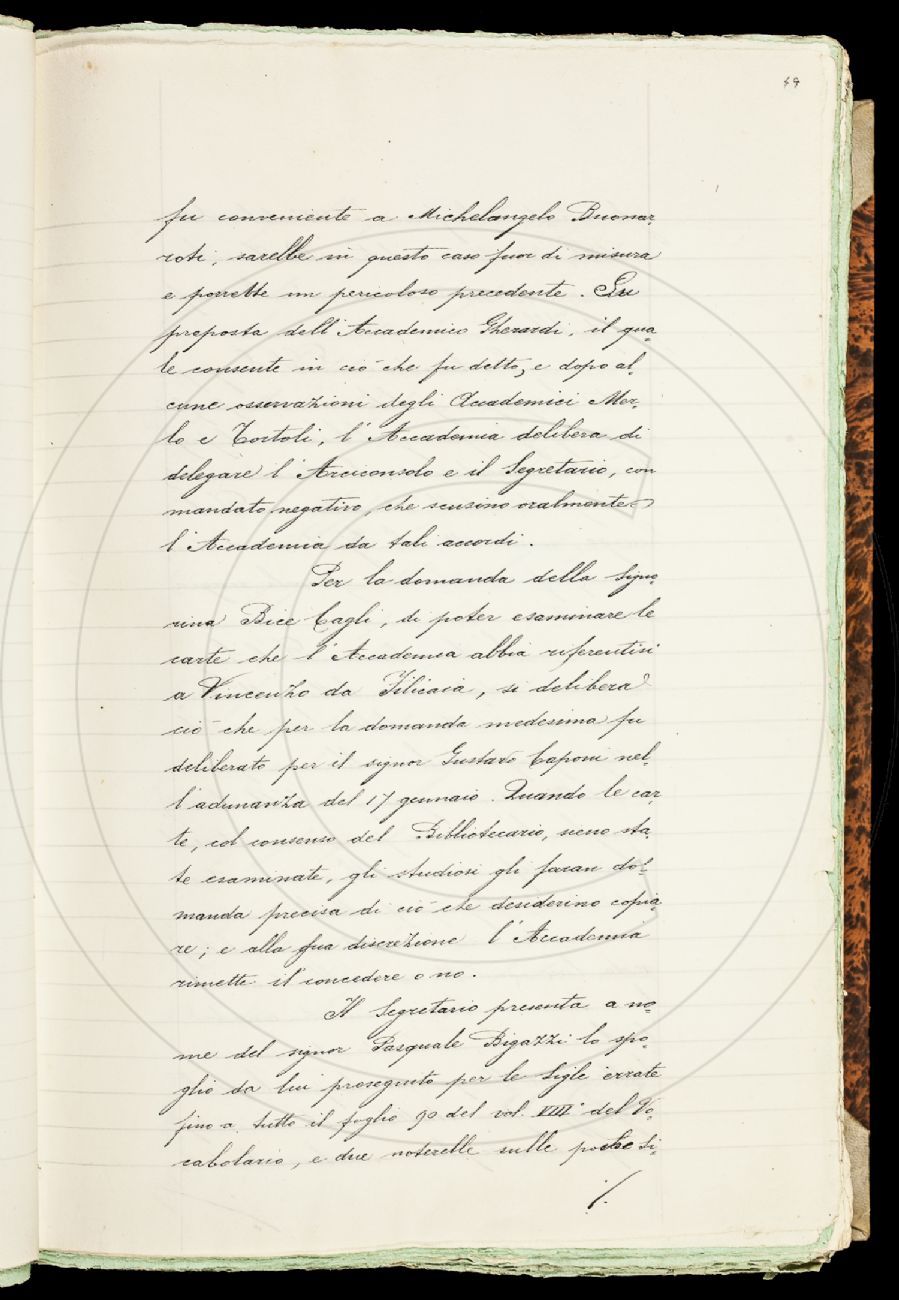 59
fu conveniente a Michelangelo Buonar-
roti, sarebbe in questo caso fuor di misura
e porrebbe un pericoloso precedente. Su
proposta dell'Accademico Gherardi, il qua-
le consente in ciò che fu detto, e dopo al-
cune osservazioni degli Accademici Mer-
lo e Tortoli, l'Accademia delibera di
delegare l'Arciconsolo e il Segretario, con
mandato negativo, che scusino oralmente
l'Accademia da tali accordi.
Per la domanda della Signo-
rina Bice Cagli, di poter esaminare le
carte che l'Accademia abbia riferentisi
a Vincenzo da Filicaia, si delibera
ciò che per la domanda medesima fu
deliberato per il signor Gustavo Caponi nel-
l'adunanza del 17 gennaio. Quando le car-
te, col consenso del Bibliotecario, sieno sta-
te esaminate, gli studiosi gli faran do-
manda precisa di ciò che desiderino copia-
re; e alla sua discrezione l'Accademia
rimette il concedere o no.
Il Segretario presenta a no-
me del signor Pasquale Bigazzi lo spo-
glio da lui proseguito per le Sigle errate
fino a tutto il foglio 90 del vol. VIII° del Vo-
cabolario, e due noterelle sulle poche Si-
./.